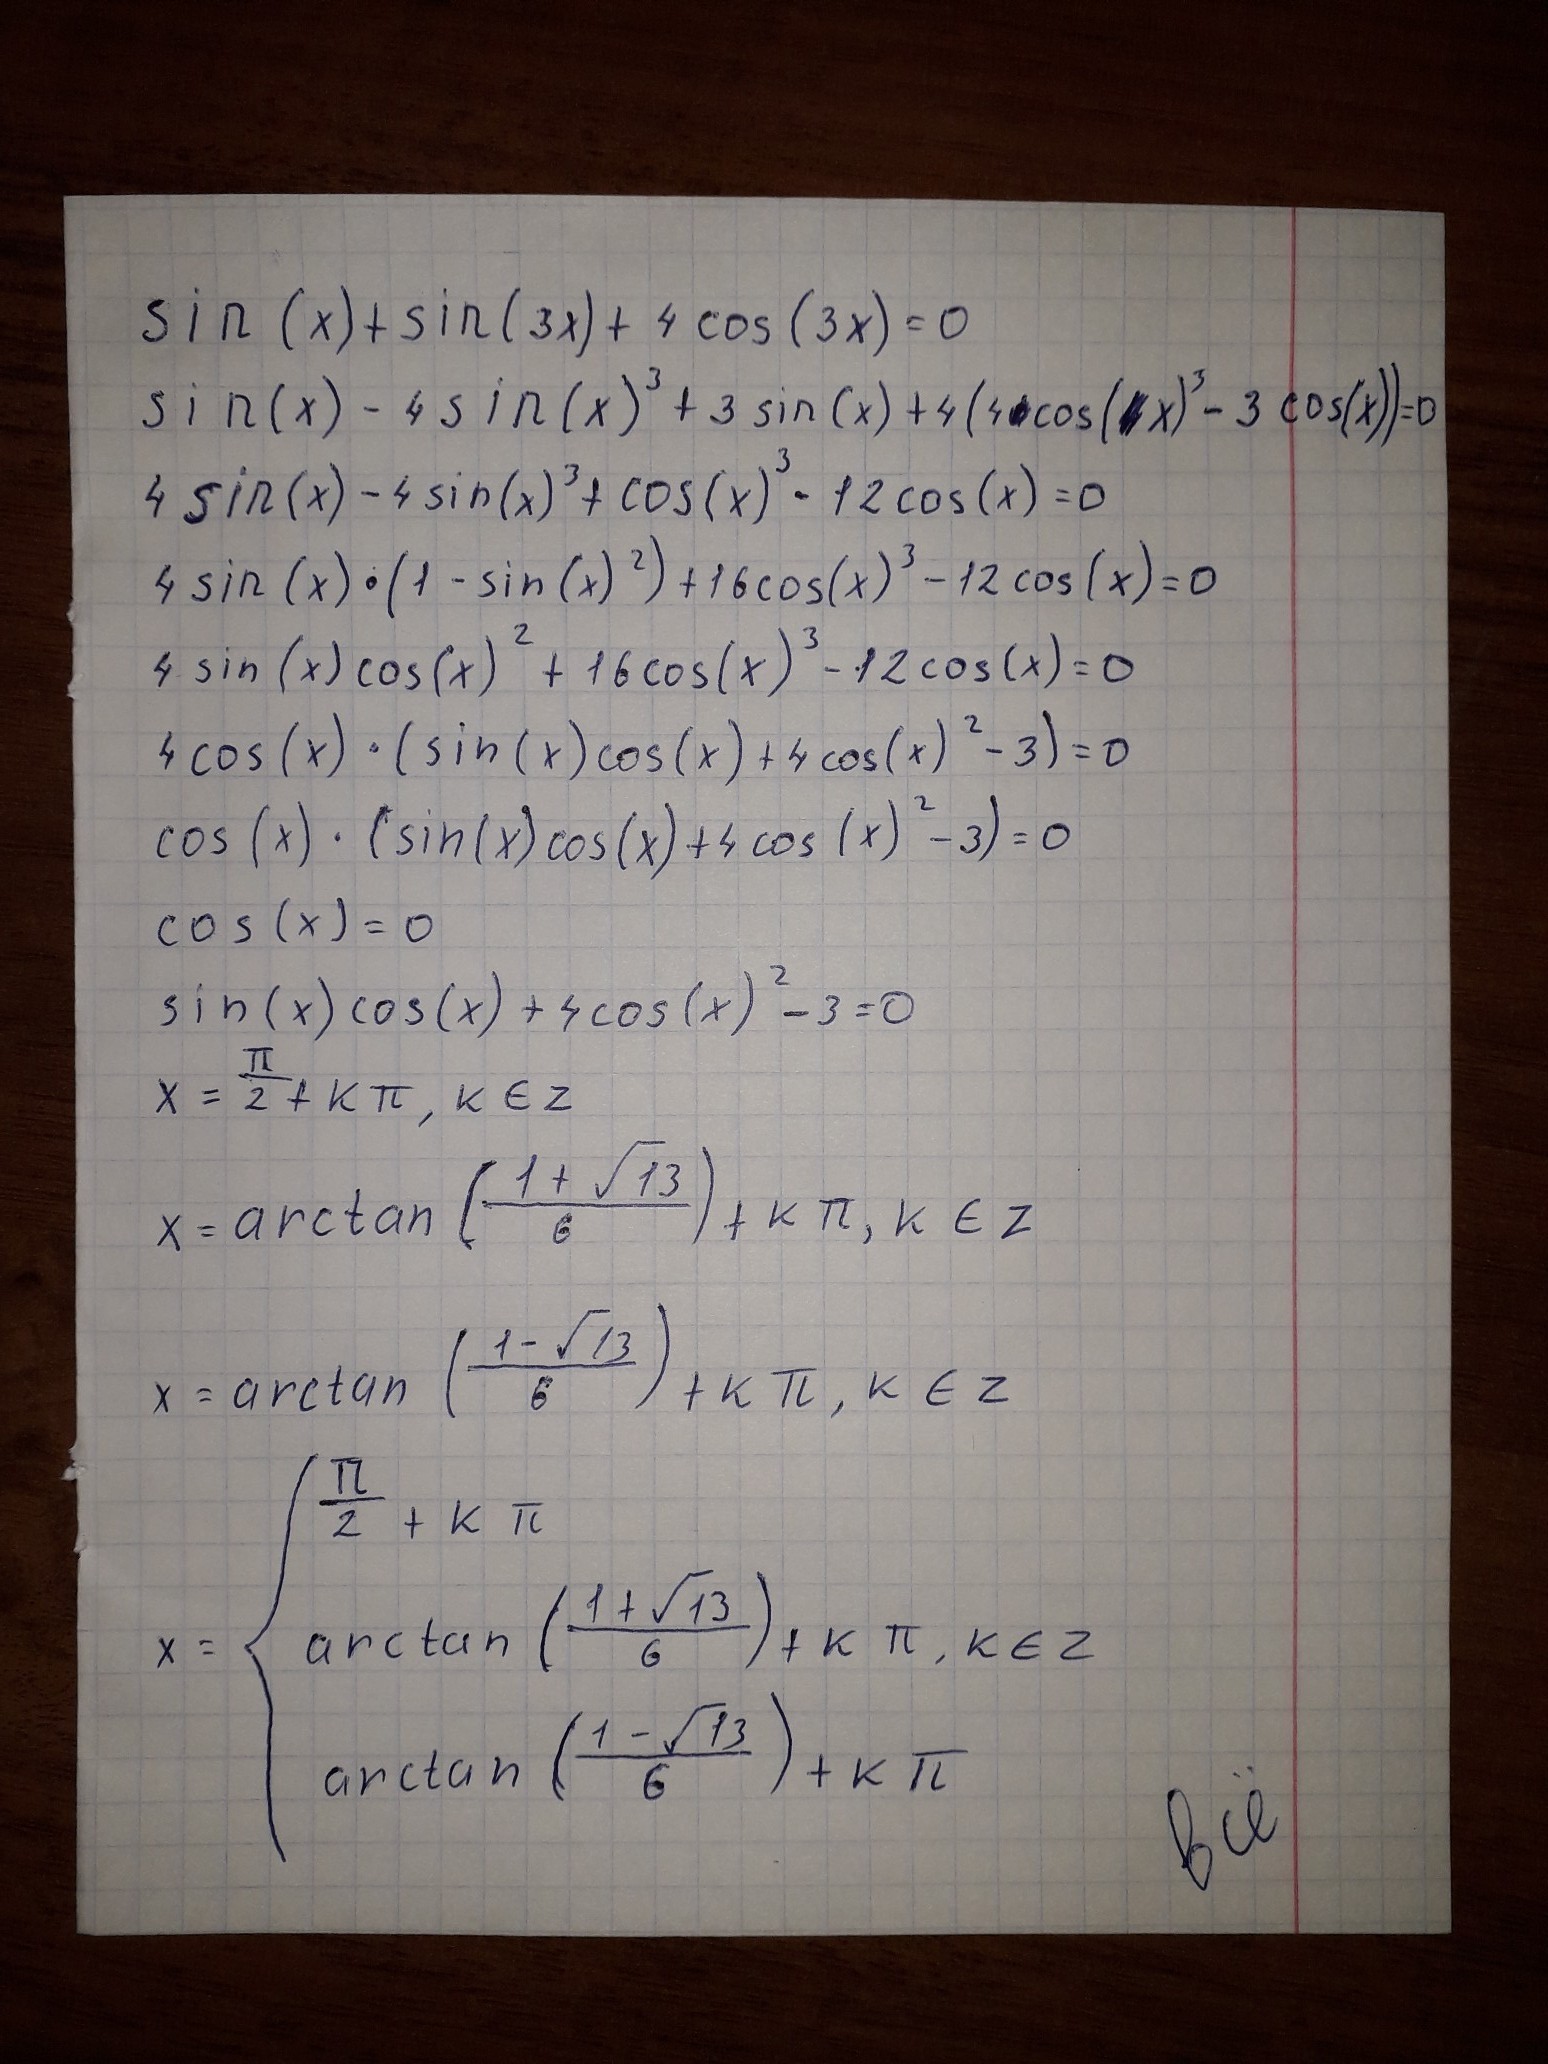 sin(x)+sin(3x)+4cos(3x)=0
sin(x)-4sin(x)³+3sin(x)+4(4cos(x)³-3cos(x))=0
4sin(x)-4sin(x)³+cos(x)³-12cos(x)=0
4sin(x)·(1-sin(x)²)+16cos(x)³-12cos(x)=0
4sin(x)cos(x)²+16cos(x)³-12cos(x)=0
4cos(x)·(sin(x)cos(x)+4cos(x)²-3)=0
cos(x)·(sin(x)cos(x)+4cos(x)²-3)=0
cos(x)=0
sin(x)cos(x)+4cos(x)²-3=0
x=π/2+kπ, k∈z
x=arctan((1+√13)/6)+kπ, k∈z
x=arctan((1-√13)/6)+kπ, k∈z
π/2+kπ
x={ arctan((1+√13)/6)+kπ, k∈z
arctan((1-√13)/6)+kπ
всё